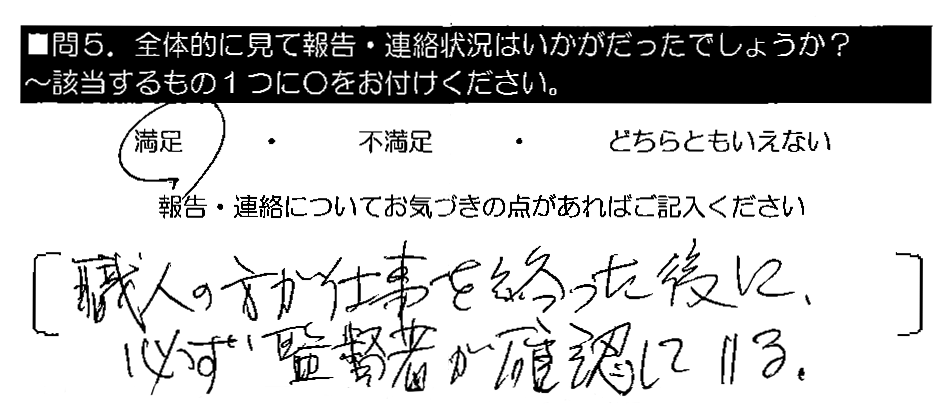 ■問5．全体的に見て報告・連絡状況はいかがだったでしょうか？
～該当するもの1つに○をお付けください。
満足 ・ 不満足 ・ どちらともいえない
報告・連絡についてお気づきの点があればご記入ください
職人の方が仕事を終った後に、
必ず監督者が確認している。